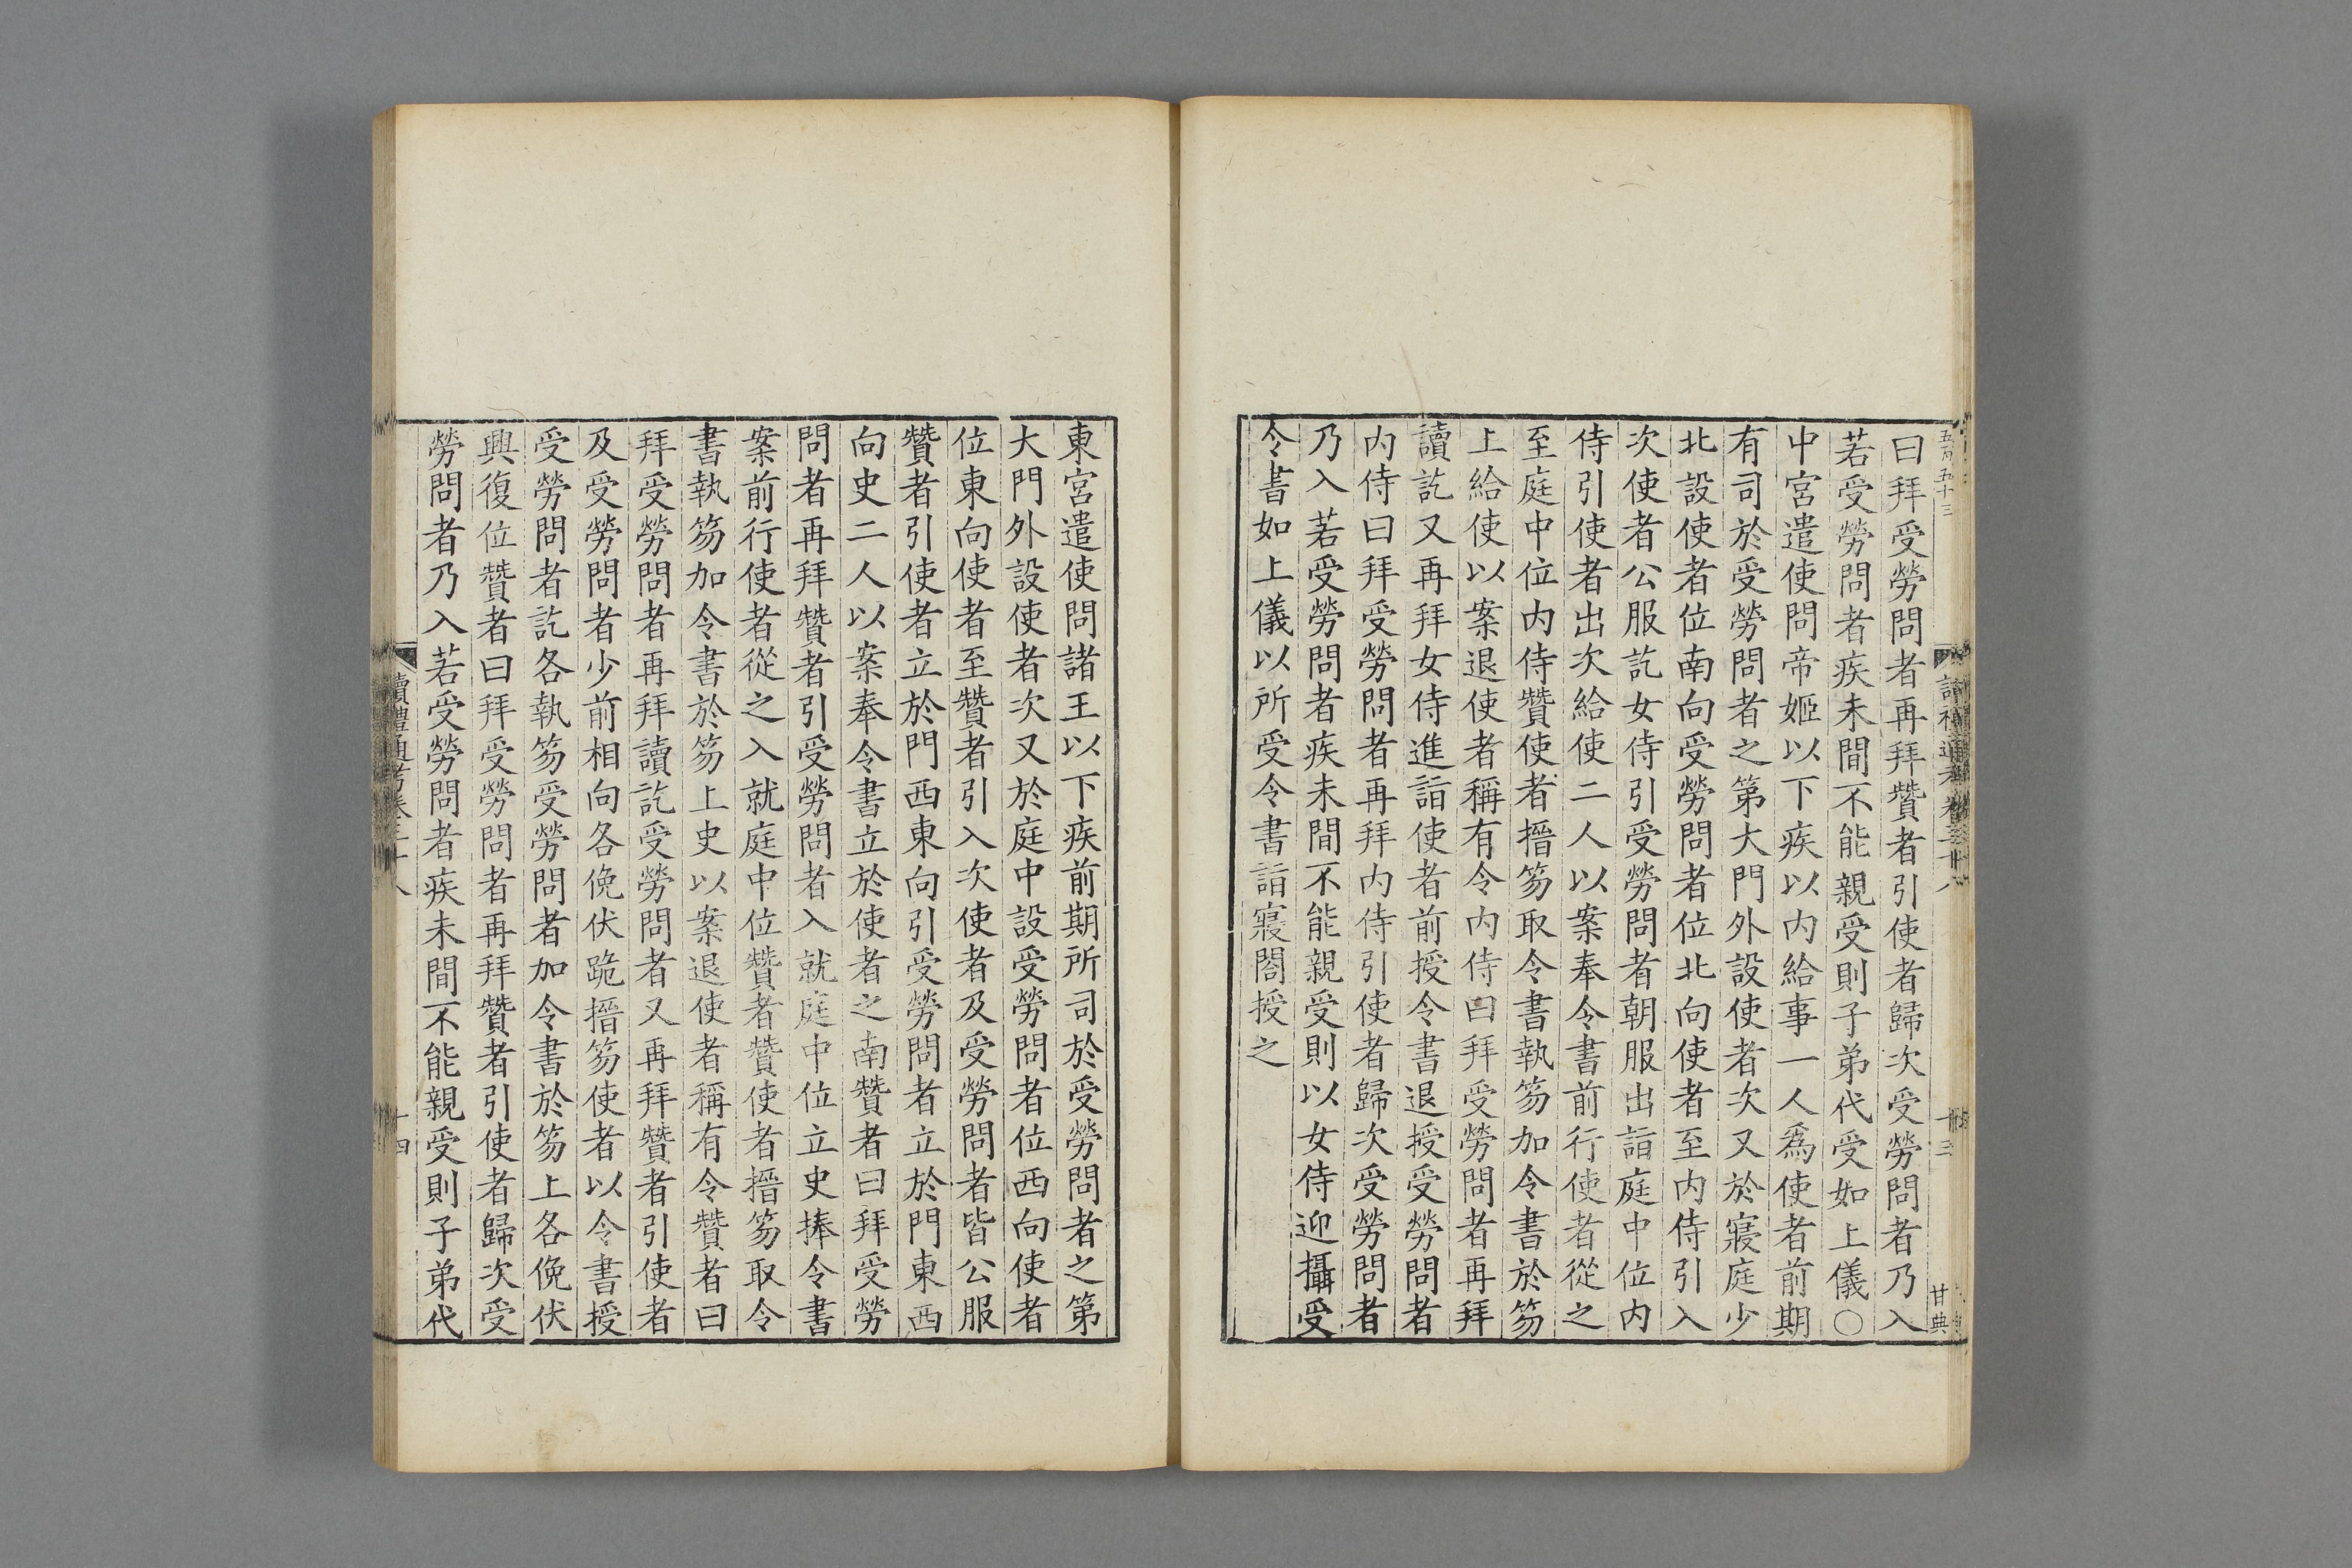 曰拜受勞問者再拜贊者引使者歸次受勞問者乃入
若受勞問者疾未間不能親受則子弟代受如上儀〇
中宮遣使問帝姬以下疾以内給事一人爲使者前期
有司於受勞問者之第大門外設使者次又於寢庭少
北設使者位南向受勞問者位北向使者至内侍引入
次使者公服訖女侍引受勞問者朝服出詣庭中位内
侍引使者出次給使二人以案奉令書前行使者從之
至庭中位内侍贊使者搢笏取令書執笏加令書於笏
上給使以案退使者稱有令内侍曰拜受勞問者再拜
讀訖又再拜女侍進詣使者前授令書退授受勞問者
内侍曰拜受勞問者再拜内侍引使者歸次受勞問者
乃入若受勞問者疾未間不能親受則以女侍迎攝受
令書如上儀以所受令書詣寢閤授之
甘典
東宮遣使問諸王以下疾前期所司於受勞問者之第
大門外設使者次又於庭中設受勞問者位西向使者
位東向使者至贊者引入次使者及受勞問者皆公服
贊者引使者立於門西東向引受勞問者立於門東西
向史二人以案奉令書立於使者之南贊者曰拜受勞
問者再拜贊者引受勞問者入就庭中位立史捧令書
案前行使者從之入就庭中位贊者贊使者搢笏取令
書執笏加令書於笏上史以案退使者稱有令贊者曰
拜受勞問者再拜讀訖受勞問者又再拜贊者引使者
及受勞問者少前相向各俛伏跪搢笏使者以令書授
受勞問者訖各執笏受勞問者加令書於笏上各俛伏
興復位贊者曰拜受勞問者再拜贊者引使者歸次受
勞問者乃入若受勞問者疾未間不能親受則子弟代
讀禮通考卷三十八